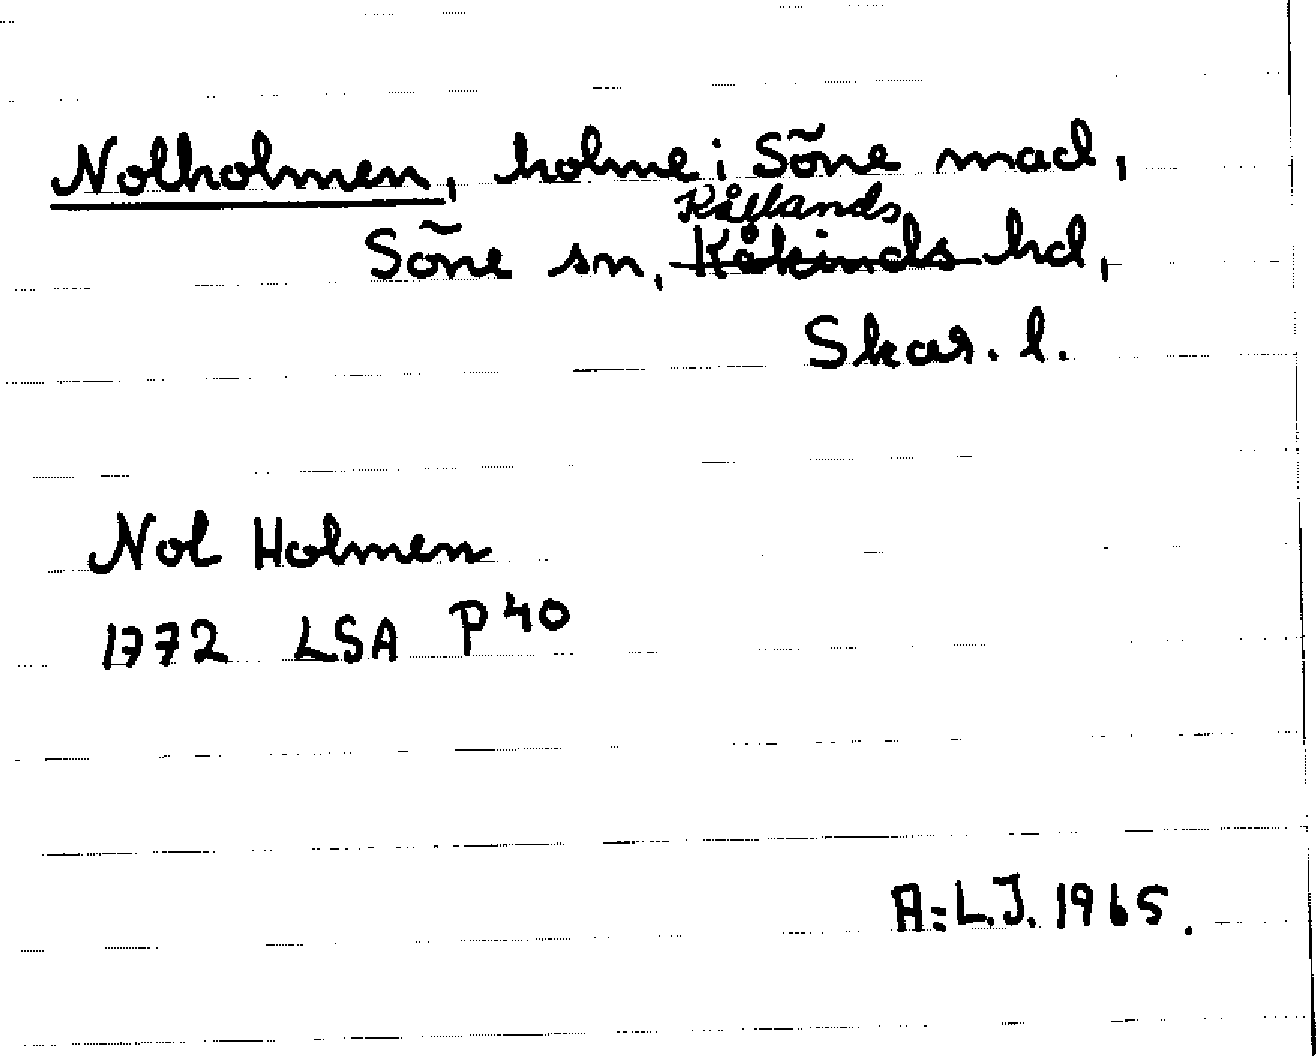 Nolholmen, holme i Söne mad,
Kållands
Söne sn, Kåkinds hd,
Skar. l.
Nol Holmen
1772 LSA P 40
A-L.J. 1965.